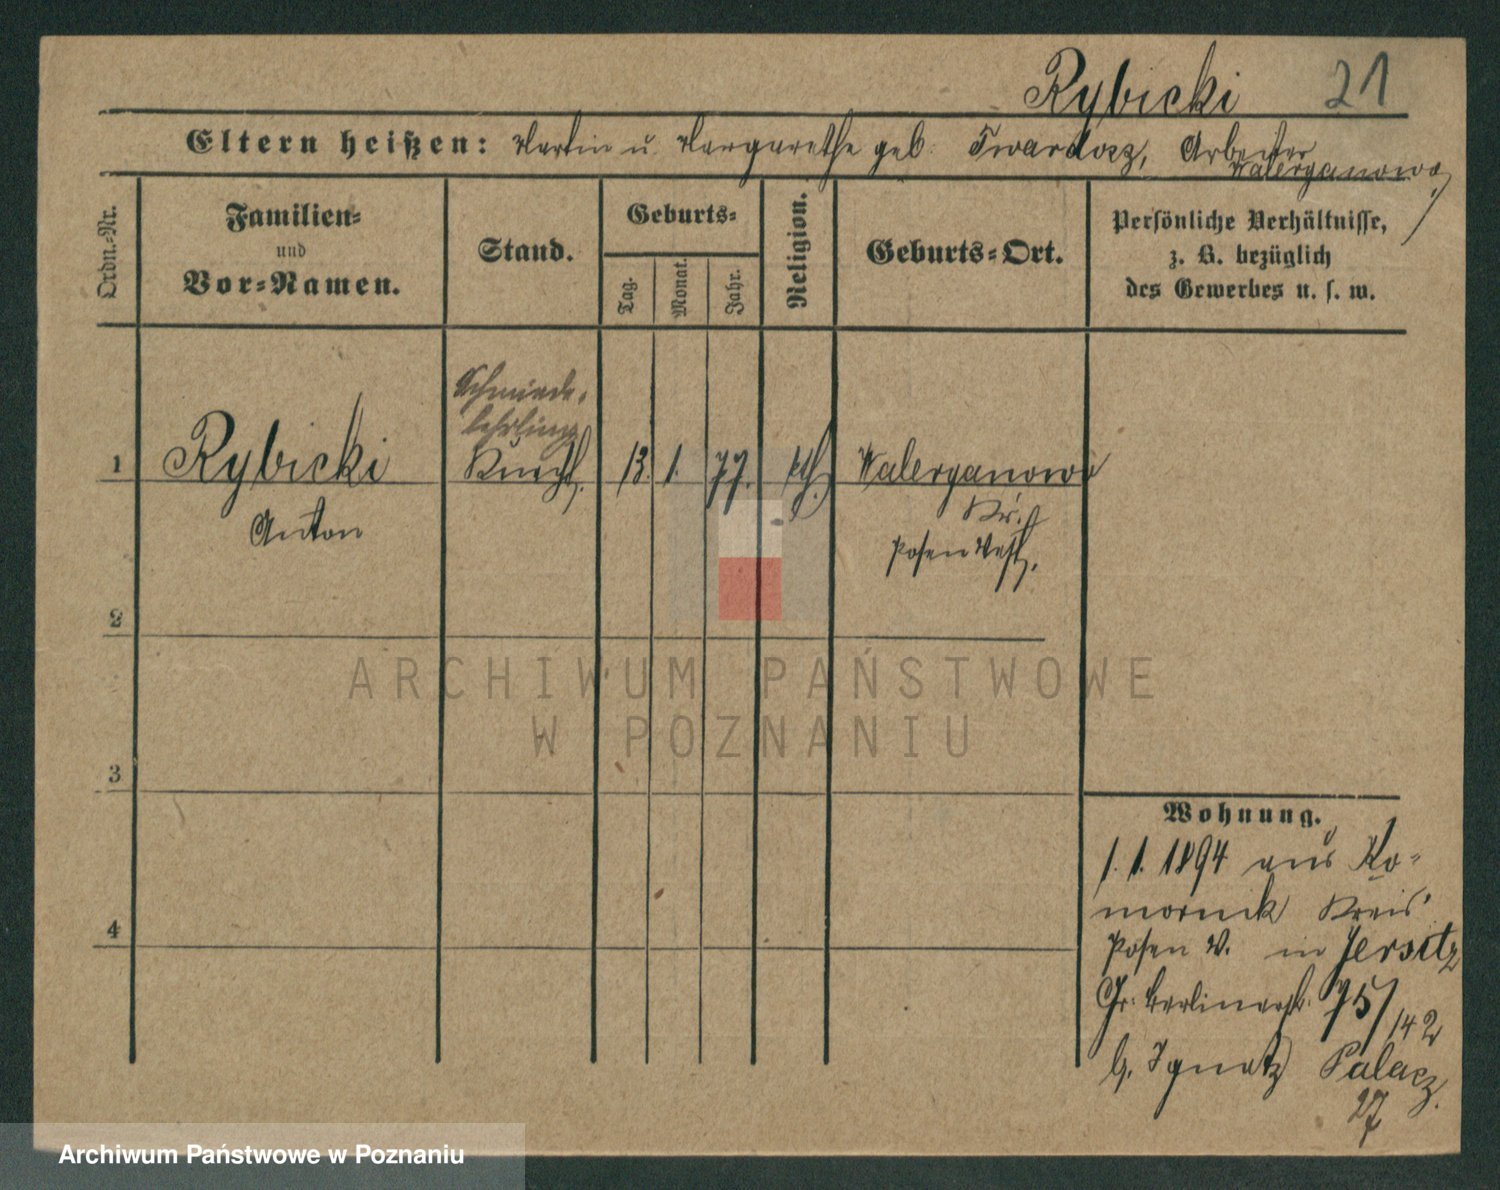 Rybicki 21
Eltern heißen: Martin u. Margarethe geb. Twardosz, Arbeiter
Walerganowo
Ordn.-Nr.
Familien-
und
Vor-Namen.
Stand.
Geburts-
Tag.
Monat.
Jahr.
Religion.
Geburts-Ort.
Persönliche Verhältnisse,
z. B. bezüglich
des Gewerbes u. s. w.
Schmiede-
lehrling
1 Rybicki Knecht. 13. 1. 77. kth. Walerganowo
Anton
Kr.
Posen West.
2
3
4
ARCHIWUM PAŃSTWOWE
W POZNANIU
Wohnung.
1. 1. 1894 aus Ko-
mornik Kreis
Posen W. in Jersitz
Gr. Berlinerstr. 75/142
b. Ignatz Palacz.
27
Archiwum Państwowe w Poznaniu